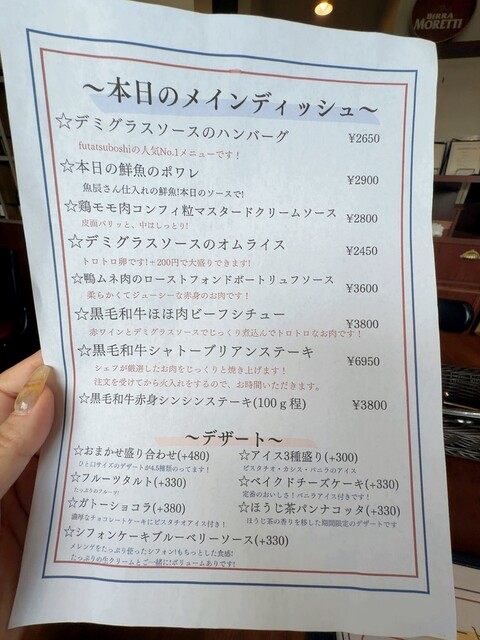 BIRRA
MORETTI
～本日のメインディッシュ～
☆デミグラスソースのハンバーグ ¥2650
futatsuboshiの人気No.1メニューです！
☆本日の鮮魚のポワレ ¥2900
魚辰さん仕入れの鮮魚!本日のソースで!
☆鶏モモ肉コンフィ粒マスタードクリームソース ¥2800
皮面パリッと、中はしっとり!
☆デミグラスソースのオムライス ¥2450
トロトロ卵です!+200円で大盛りできます!
☆鴨ムネ肉のローストフォンドボートリュフソース ¥3600
柔らかくてジューシーな赤身のお肉です！
☆黒毛和牛ほほ肉ビーフシチュー ¥3800
赤ワインとデミグラスソースでじっくり煮込んでトロトロなお肉です！
☆黒毛和牛シャトーブリアンステーキ ¥6950
シェフが厳選したお肉をじっくりと焼き上げます！
注文を受けてから火入れをするので、お時間いただきます。
☆黒毛和牛赤身シンシンステーキ(100ｇ程) ¥3800
～デザート～
☆おまかせ盛り合わせ(+480)
ひと口サイズのデザートが4,5種類のってます！
☆アイス3種盛り(+300)
ピスタチオ・カシス・バニラのアイス
☆フルーツタルト(+330)
たっぷりのフルーツ!
☆ベイクドチーズケーキ(+330)
定番のおいしさ！バニラアイス付きです！
☆ガトーショコラ(+380)
濃厚なチョコレートケーキにピスタチオアイス付き！
☆ほうじ茶パンナコッタ(+330)
ほうじ茶の香りを移した期間限定のデザートです
☆シフォンケーキブルーベリーソース(+330)
メレンゲをたっぷり使ったシフォン!もちっとした食感!
たっぷりの生クリームとご一緒に!ボリュームありです!